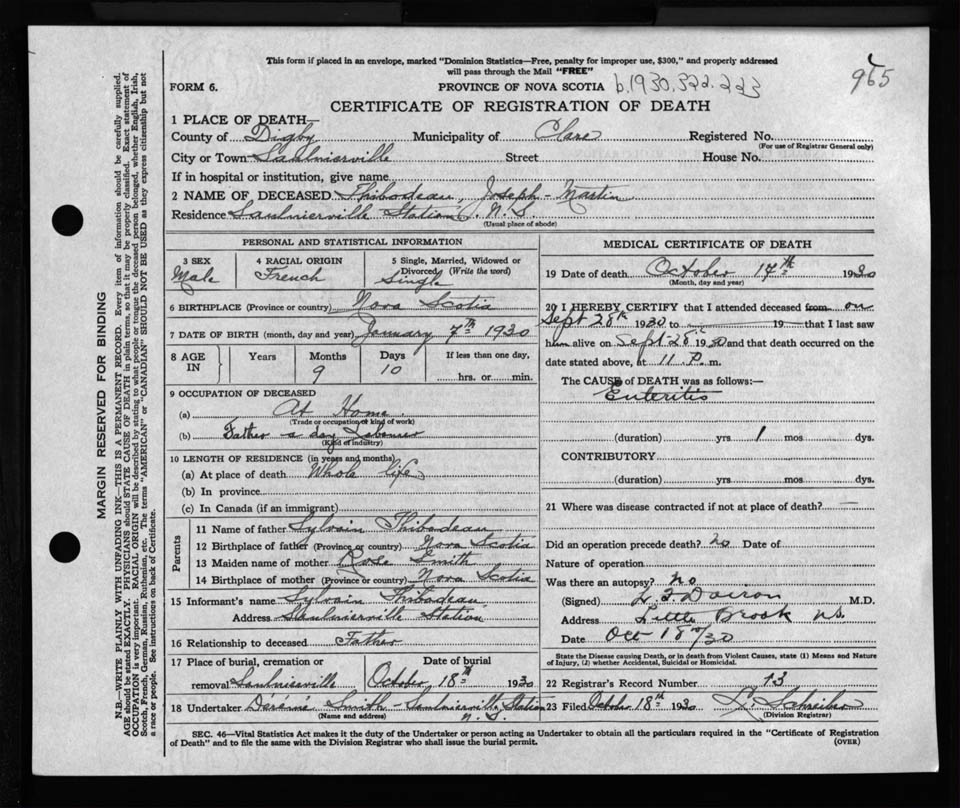 This form if placed in an envelope, marked "Dominion Statistics—Free, penalty for improper use, $300," and properly addressed
will pass through the Mail "FREE"
965
FORM 6.
PROVINCE OF NOVA SCOTIA b.1930.322.223
CERTIFICATE OF REGISTRATION OF DEATH
1 PLACE OF DEATH—
County of Digby Municipality of Clare Registered No.
(For use of Registrar General only)
City or Town Saulnierville Street House No.
If in hospital or institution, give name
2 NAME OF DECEASED Thibodeau, Joseph-Martin
Residence Saulnierville Station, N.S.
(Usual place of abode)
PERSONAL AND STATISTICAL INFORMATION
3 SEX 4 RACIAL ORIGIN 5 Single, Married, Widowed or
Divorced (Write the word)
Male French Single
6 BIRTHPLACE (Province or country) Nova Scotia
7 DATE OF BIRTH (month, day and year) January 7th 1930
8 AGE IN Years Months Days If less than one day,
9 10 hrs. or min.
9 OCCUPATION OF DECEASED
(a) At Home
(Trade or occupation or kind of work)
(b) Father a day Labourer
(Kind of industry)
10 LENGTH OF RESIDENCE (in years and months)
(a) At place of death Whole life
(b) In province
(c) In Canada (if an immigrant)
Parents
11 Name of father Sylvain Thibodeau
12 Birthplace of father (Province or country) Nova Scotia
13 Maiden name of mother Rose Smith
14 Birthplace of mother (Province or country) Nova Scotia
15 Informant's name Sylvain Thibodeau
Address Saulnierville Station
16 Relationship to deceased Father
17 Place of burial, cremation or Date of burial
removal Saulnierville October 18th 1930
18 Undertaker Smith - Saulnierville Station
(Name and address) N.S.
MEDICAL CERTIFICATE OF DEATH
19 Date of death October 17th 1930
(Month, day and year)
20 I HEREBY CERTIFY that I attended deceased from on
Sept 28th 1930 to 19 that I last saw
him alive on Sept 28th 1930 and that death occurred on the
date stated above, at 11 P. m.
The CAUSE of DEATH was as follows:—
Enteritis
(duration) yrs 1 mos dys.
CONTRIBUTORY
(duration) yrs. mos dys.
21 Where was disease contracted if not at place of death?
Did an operation precede death? no Date of
Nature of operation
Was there an autopsy? no
(Signed) M.D.
Address Little Brook N.S.
Date Oct 18th/30
State the Disease causing Death, or in death from Violent Causes, state (1) Means and Nature
of Injury, (2) whether Accidental, Suicidal or Homicidal.
22 Registrar's Record Number 73
23 Filed October 18th 1930
(Division Registrar)
SEC. 46—Vital Statistics Act makes it the duty of the Undertaker or person acting as Undertaker to obtain all the particulars required in the "Certificate of Registration
of Death" and to file the same with the Division Registrar who shall issue the burial permit.
(OVER)
MARGIN RESERVED FOR BINDING
N.B.—WRITE PLAINLY WITH UNFADING INK—THIS IS A PERMANENT RECORD. Every item of information should be carefully supplied.
AGE should be stated EXACTLY. PHYSICIANS should STATE CAUSE OF DEATH in plain terms, so that it may be properly classified. Exact statement of
OCCUPATION is very important. RACIAL ORIGIN will be described by stating to what people or tongue the deceased person belonged, whether English, Irish,
Scotch, French, German, Russian, Ruthenian, etc. The terms "AMERICAN" or "CANADIAN" SHOULD NOT BE USED as they express citizenship but not
a race or people. See instructions on back of Certificate.